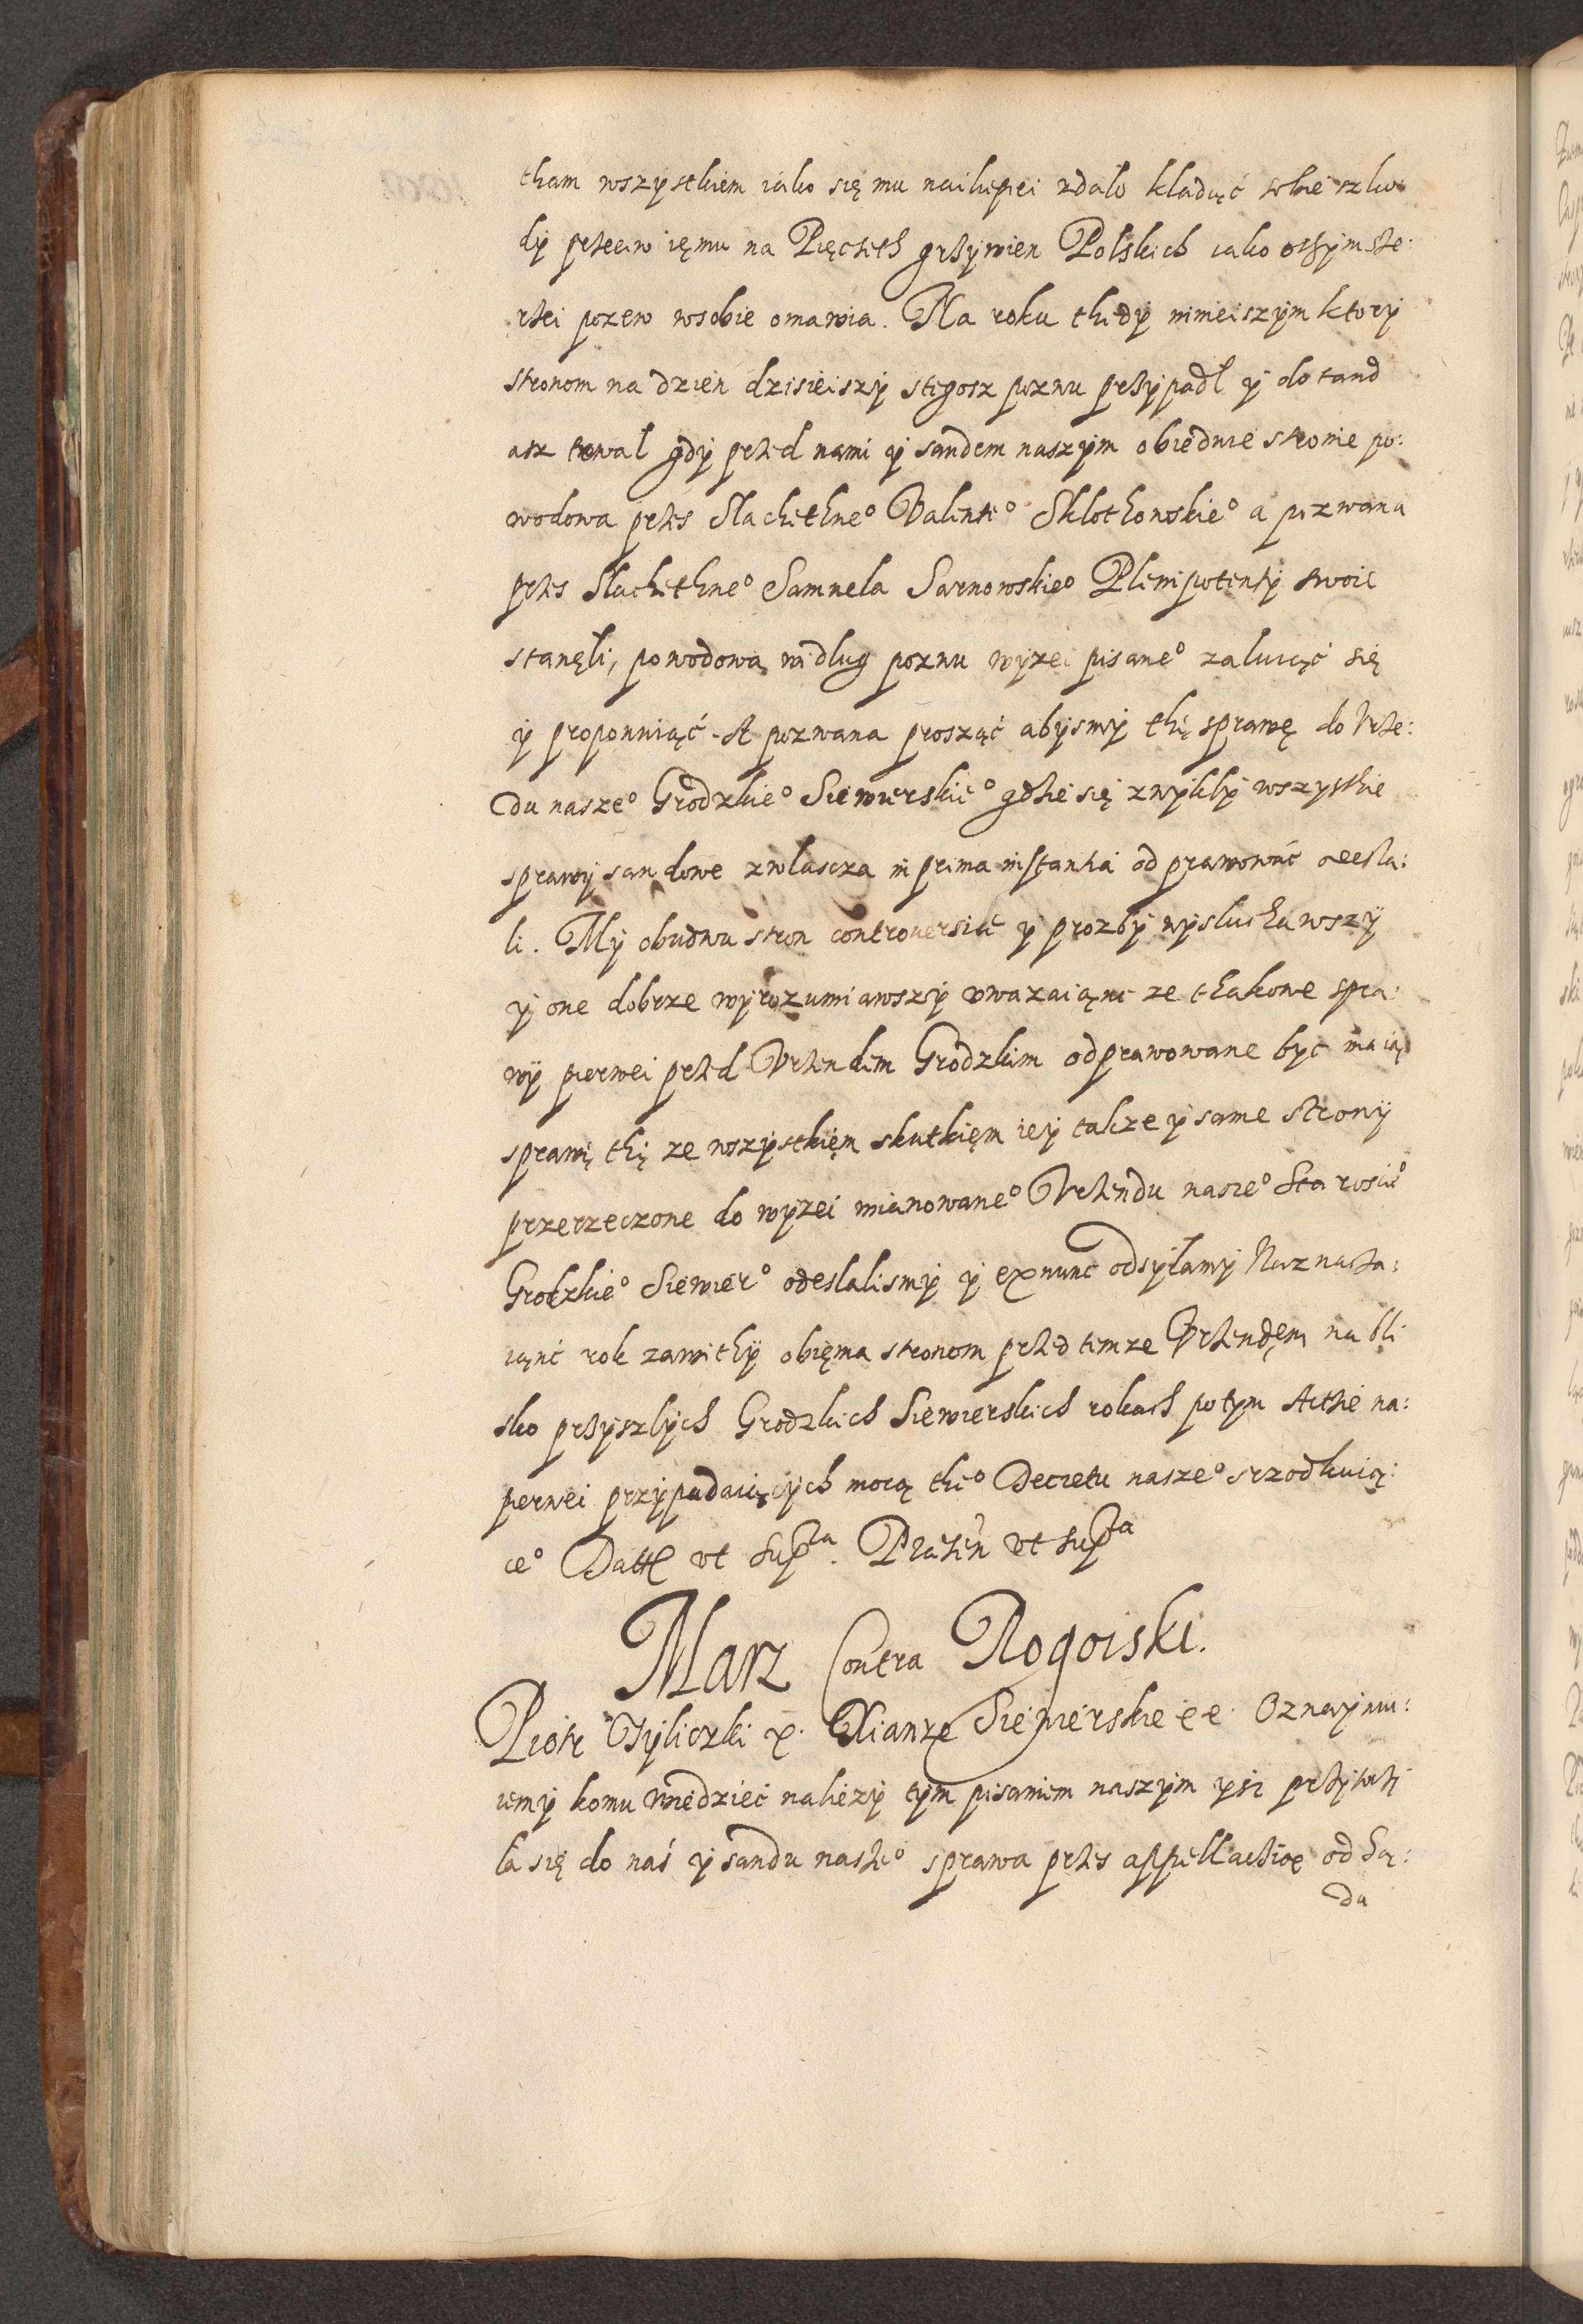 tham wszystkiem iako się mu nailepiei zdało kładąć sobie szko:
dy przeciw iemu na Pięcziith grzywien Polskich iako othym sze:
rzei pozew wsobie omawia. Na roku thedy ninieiszym ktory
stronom na dzien dzisieiszy stegosz pozwu przypadł y do tand
asz trwał gdy przed nami y sandem naszym obiedwie stronie po:
wodowa przes Slachethneº Valenteº Sklothowskieº a pozwana
przes Slachethneº Samuela Sarnowskieº Plenipotenty swoie
stanęli, powodowa wedlug pozwu wyzei pisaneº zaluiąć się
y proponuiąć. A pozwana prosząć abysmy thę sprawę do Vrze:
du naszeº Grodzkieº Siewierskieº gdzie się zwykły wszystkie
sprawy sandowe zwlascza in prima instantia odprawowáć odesla:
li. My obudwu stron controuersie y prozby wysłuchawszy
y one dobrze wyrozumiawszy vwazaiąnc ze thakowe spra:
wy pierwei przed Vrzendem Grodzkim odprawowane byc maią
sprawę thę ze wszystkiem skutkiem iey takze y same strony
przerzeczone do wyzei mianowaneº Vrzendu naszeº Starosćieº
Grodzkieº Siewierº odeslalismy y exnunc odsyłamy Naznacza:
iąnć rok zawithy obiema stronom przed temze Vrzendem na bli
sko przyszłych Grodzkich Siewierskich rokach potym Akthie na:
perwei przypadaiących mocą theº Decretu naszeº srzodkuią:
ceº Datt vt supra. Præsen vt supra
Marz Contra Rogoiski.
Piotr Tyliczki x. Xianze Siewierskie ee. Oznaymu:
iemy komu wiedzieć nalezy tym pisaniem naszym ysz przytoczy
ła się do nas y sandu naszeº sprawa przes appellachiae od Są:
da